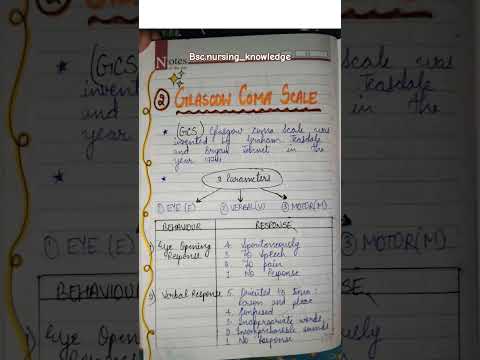 Notes
Bsc.nursing_knowledge
② GLASGOW COMA SCALE
* (GCS) Glasgow Coma Scale was
invented by Graham Teasdale
and Bryan Jennet in the
year 1974
*
3 Parameters
① EYE (E) ② VERBAL (V) ③ MOTOR (M)
BEHAVIOUR RESPONSE
Eye Opening
Response
4. Spontaneously
3 To Speech
2 To pain
1 No Response
Verbal Response
5. Oriented to time,
person and place
4 Confused
3 Inappropriate words
2 Incomprehensible sounds
1 No Response
(GCS)
invented
and
year
① EYE (E)
BEHAVIOU
Eye Openi
Scale was
Teasdale
in the
MOTOR(M)